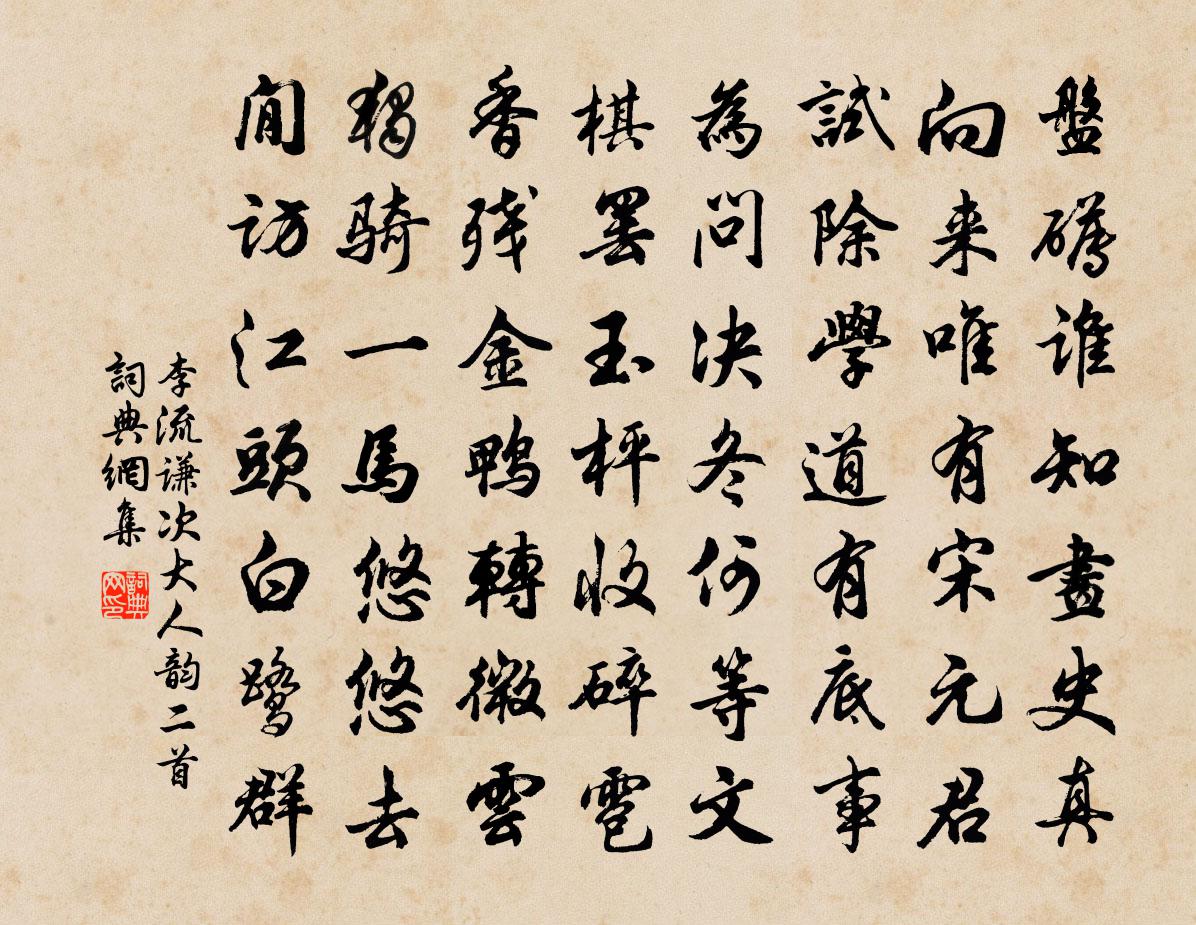 盤礴谁知畫史真
向来唯有宋元君
試除學道有底事
為問決冬何等文
棋罢玉枰收碎雹
香残金鸭轉微雲
独骑一馬悠悠去
閒访江頭白鹭群
李流谦次大人韵二首
詞典網集
詞典网印